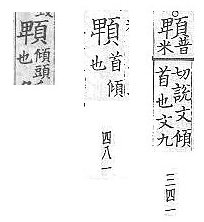 䫌普米切說文傾首也文九
三四一
䫌首傾也
四八一
䫌傾頭也